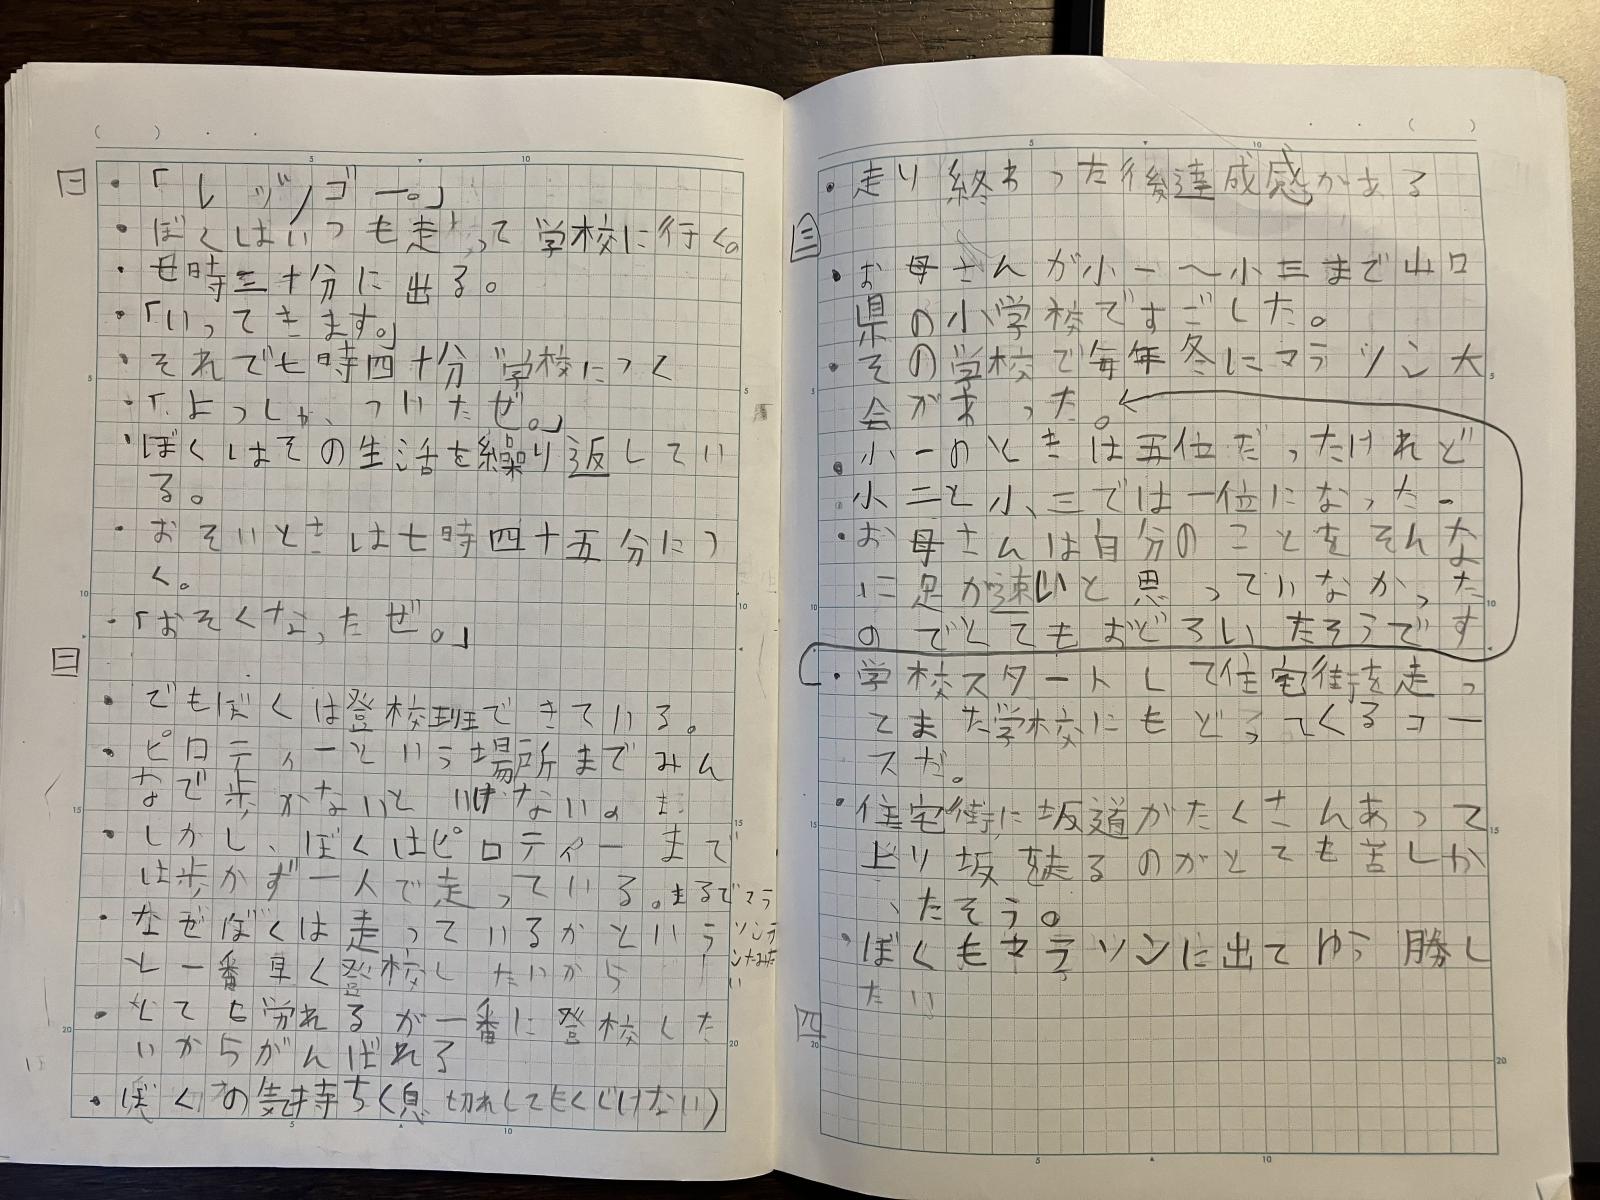 一
・「レッツゴー。」
・ぼくはいつも走って学校に行く。
・七時三十分に出る。
・「いってきます。」
・それで七時四十分学校につく
・「よっしゃ、ついたぜ。」
・ぼくはその生活を繰り返してい
る。
・おそいときは七時四十五分につ
く。
・「おそくなったぜ。」
二
・でもぼくは登校班できている。
・ピロティーという場所までみん
なで歩かないといけない。
・しかし、ぼくはピロティーまで
は歩かず一人で走っている。まるでマラ
ソンテ
・なぜぼくは走っているかという
と一番早く登校したいから
・とても労れるが一番に登校した
いからがんばれる
・ぼくの気持ち(息切れしてもくじけない)
・走り終わった後達成感がある
三
・お母さんが小一〜小三まで山口
県の小学校ですごした。
・その学校で毎年冬にマラソン大
会があった。
・小一のときは五位だったけれど
小二と小三では一位になった。
・お母さんは自分のことをそんな
に足が速いと思っていなかった
のでとてもおどろいたそうです
・学校スタートして住宅街を走っ
てまた学校にもどってくるコー
スだ。
・住宅街に坂道がたくさんあって
上り坂を走るのがとても苦しか
ったそう。
・ぼくもマラソンに出てゆう勝し
たい
四